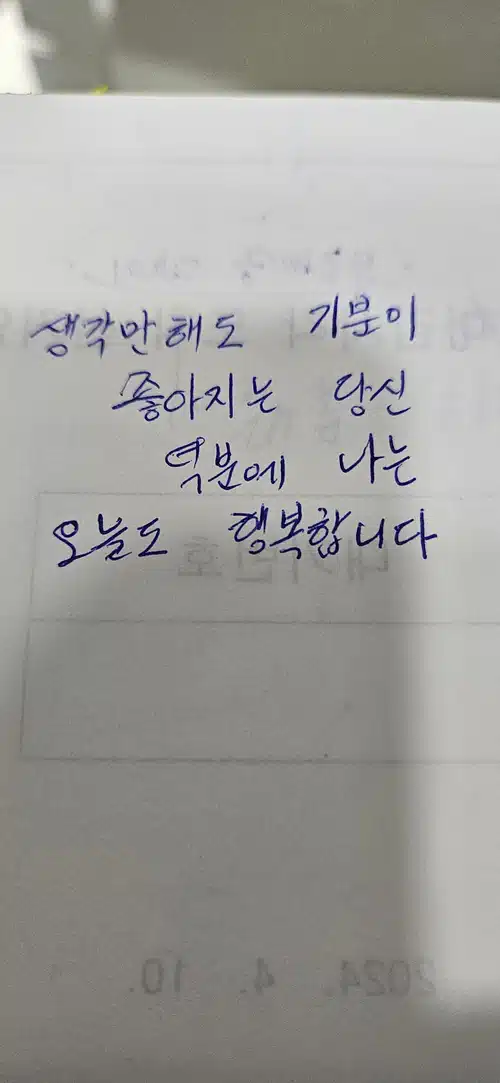 생각만해도 기분이
좋아지는 당신
덕분에 나는
오늘도 행복합니다
대기번호
2024. 4. 10.